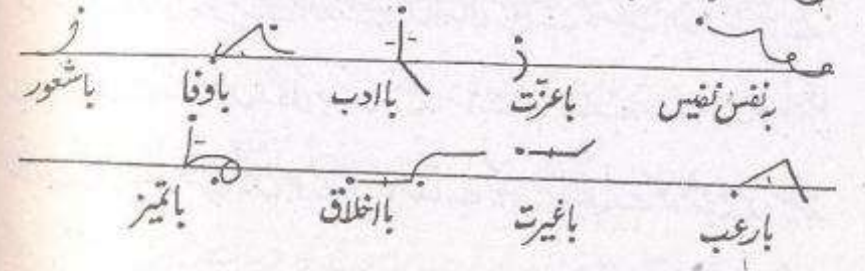 بہ نفس نفیس باعزّت باادب باوفا باشعور
بارعب باغیرت بااخلاق باتمیز